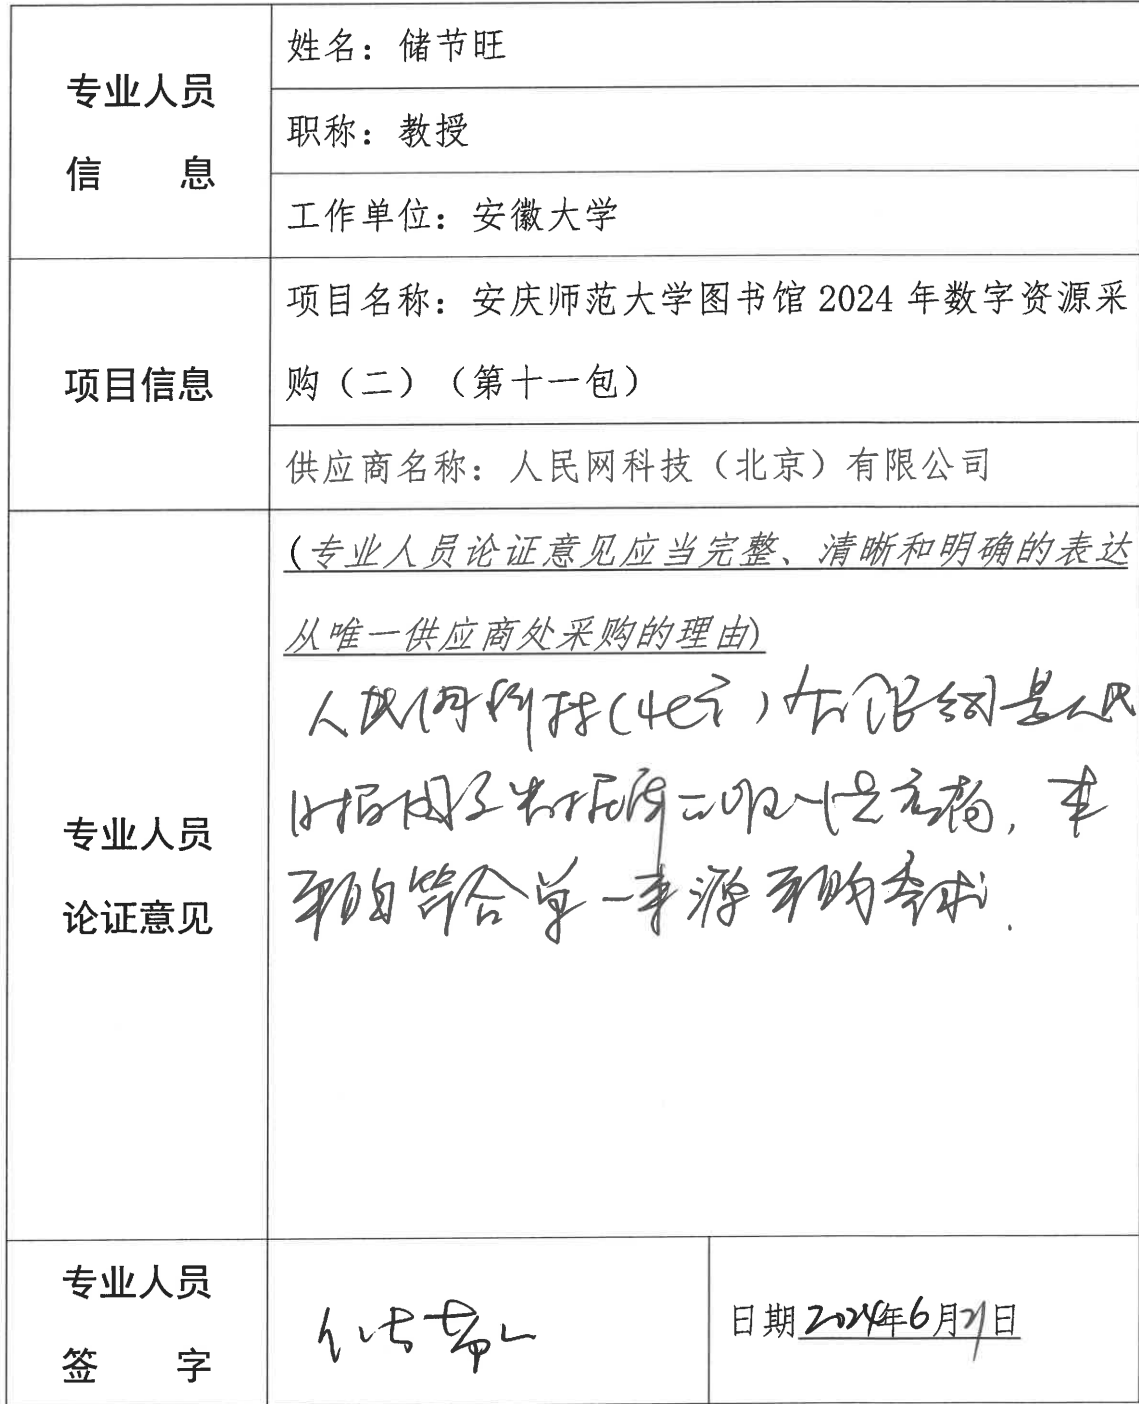 专业人员
信 息
姓名：储节旺
职称：教授
工作单位：安徽大学
项目信息
项目名称：安庆师范大学图书馆 2024 年数字资源采
购（二）（第十一包）
供应商名称：人民网科技（北京）有限公司
专业人员
论证意见
(专业人员论证意见应当完整、清晰和明确的表达
从唯一供应商处采购的理由)
人民网科技(北京)有限公司是人民
日报图文数据库唯一供应商，本
采购符合单一来源采购要求.
专业人员
签 字
储节旺
日期2024年6月21日